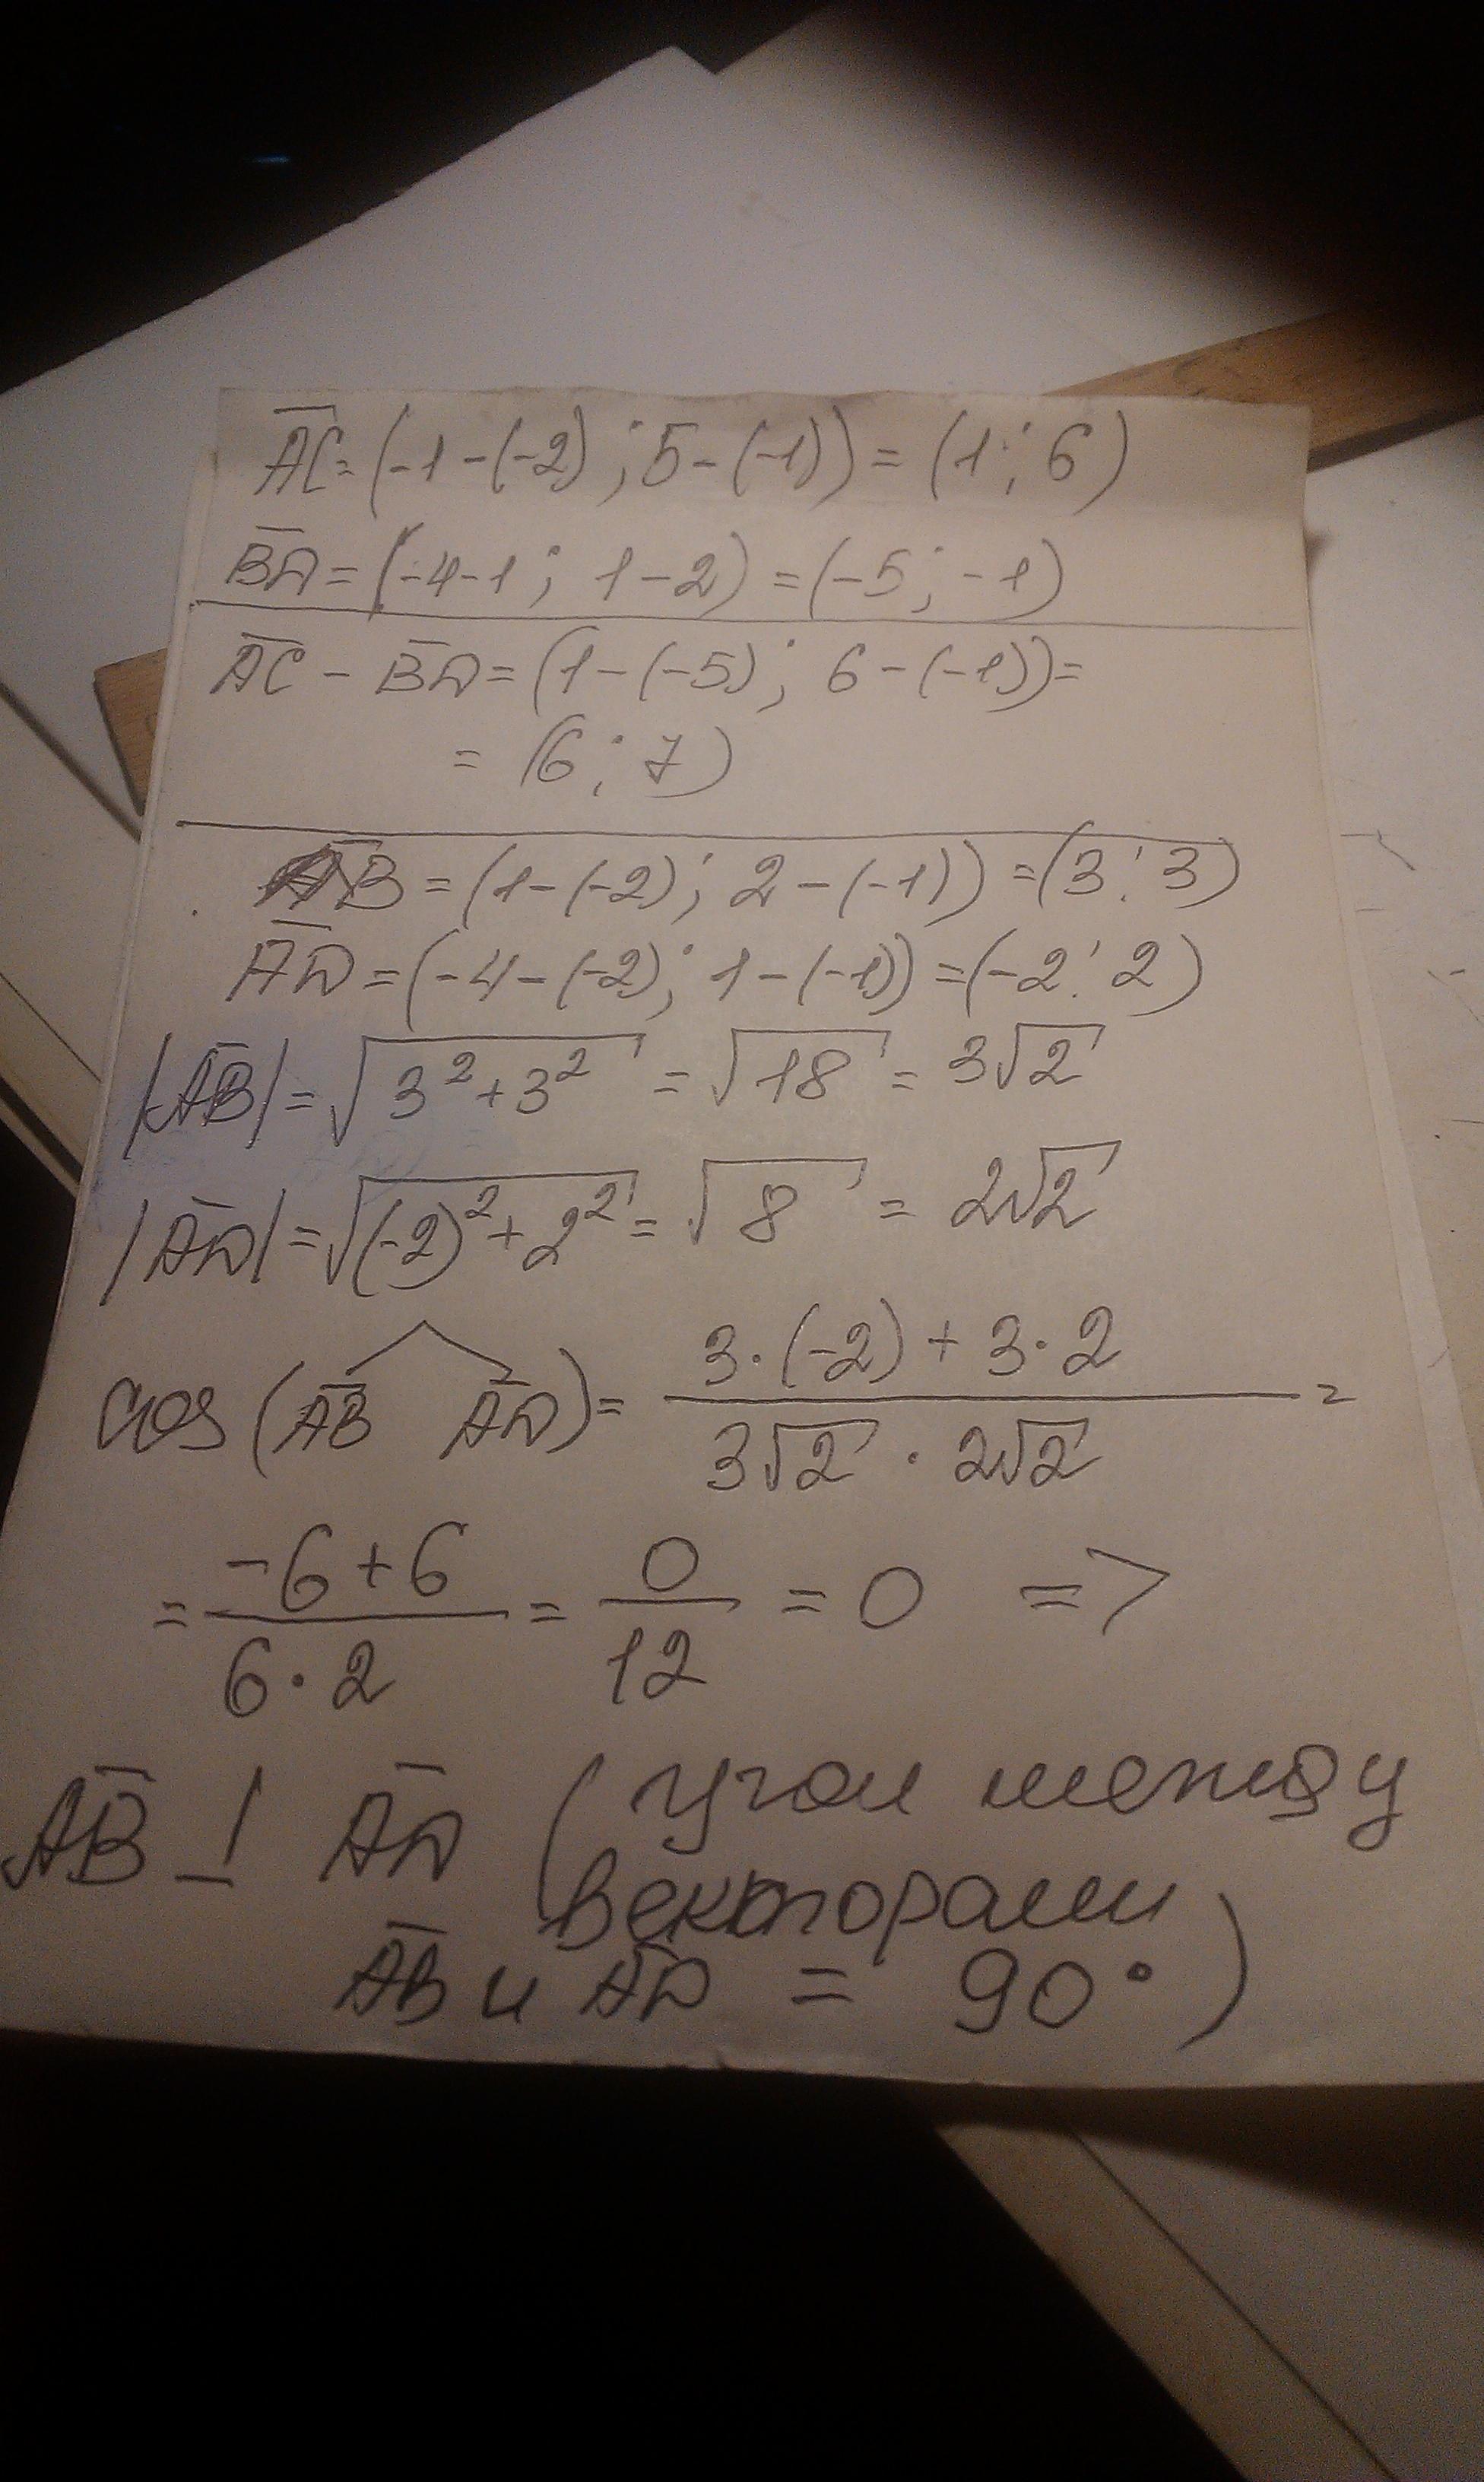 A̅C̅ = (-1-(-2); 5-(-1)) = (1; 6)
B̅D̅ = (-4-1; 1-2) = (-5; -1)
A̅C̅ - B̅D̅ = (1-(-5); 6-(-1)) =
= (6; 7)
A̅B̅ = (1-(-2); 2-(-1)) = (3; 3)
A̅D̅ = (-4-(-2); 1-(-1)) = (-2; 2)
|A̅B̅| = √(3²+3²) = √18 = 3√2
|A̅D̅| = √((-2)²+2²) = √8 = 2√2
cos(A̅B̅ ^ A̅D̅) = (3·(-2) + 3·2)/(3√2 · 2√2) =
= (-6+6)/(6·2) = 0/12 = 0 =>
A̅B̅ ⊥ A̅D̅ (угол между
векторами
A̅B̅ и A̅D̅ = 90°)